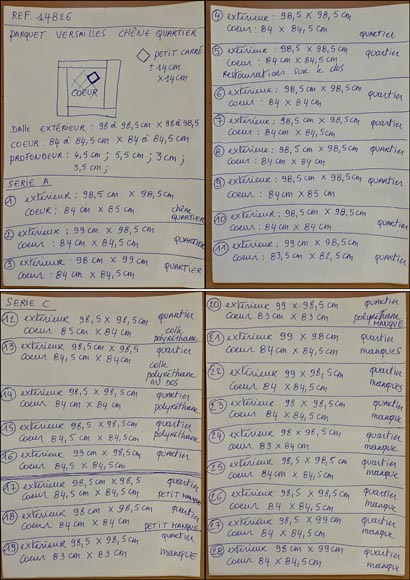 REF. 14826
PARQUET VERSAILLES CHÊNE QUARTIER
PETIT CARRÉ
± 14cm
x 14cm
COEUR
DALLE EXTÉRIEUR : 98 à 98,5cm x 98 à 98,5
COEUR : 84 à 84,5cm x 84 à 84,5cm
PROFONDEUR : 4,5cm ; 5,5cm ; 3cm ;
3,5cm ;
SERIE A
① extérieur : 98,5cm x 98,5cm
coeur : 84cm x 85cm chêne QUARTIER
② extérieur : 99cm x 98,5cm
coeur : 84cm x 84,5cm QUARTIER
③ extérieur : 98cm x 99cm
coeur : 84cm x 84,5cm QUARTIER
④ extérieur : 98,5 x 98,5cm
coeur : 84 x 84,5cm quartier
⑤ extérieur : 98,5 x 98,5cm
coeur : 84 x 84,5cm quartier
Restaurations sur le dos
⑥ extérieur : 98,5 x 98,5cm
coeur : 84 x 84cm quartier
⑦ extérieur : 98,5cm x 98,5cm
coeur : 84cm x 84,5cm quartier
⑧ extérieur : 98,5cm x 98,5cm
coeur : 84cm x 84,5cm quartier
⑨ extérieur : 98,5cm x 98,5cm
coeur : 84cm x 85cm quartier
⑩ extérieur : 98,5cm x 98,5cm
coeur : 84cm x 84cm quartier
⑪ extérieur : 99cm x 98,5cm
coeur : 83,5cm x 82,5cm quartier
SERIE C
⑫ extérieur 98,5 x 98,5cm quartier
coeur 85cm x 84cm colle polyréthane
⑬ extérieur 98,5cm x 98,5 quartier
coeur 84,5cm x 84cm colle
polyréthane
AU DOS
⑭ extérieur 98,5 x 98,5cm quartier
coeur 84cm x 84cm polyréthane
⑮ extérieur 98,5 x 98,5cm quartier
coeur 84,5cm x 84cm polyréthane
⑯ extérieur 99cm x 98,5cm quartier
coeur 84,5 x 84,5cm
⑰ extérieur 98,5cm x 98,5 quartier
coeur 84,5cm x 84,5cm PETIT manque
⑱ extérieur 98cm x 98,5cm quartier
coeur 84cm x 84cm PETIT MANQUE
⑲ extérieur 98,5 x 98,5cm quartier
coeur 83cm x 83cm manque
⑳ extérieur 99 x 98,5cm quartier
coeur 83cm x 83cm polyréthane
MANQUE
㉑ extérieur 99 x 98cm quartier
coeur 84cm x 84,5cm manques
㉒ extérieur 99 x 99cm quartier
coeur 84 x 84,5cm manques
㉓ extérieur 98 x 98,5cm quartier
coeur 84 x 84,5cm manque
㉔ extérieur 98 x 98,5cm quartier
coeur 83 x 84cm manque
㉕ extérieur 98,5 x 98,5cm quartier
coeur 84cm x 84,5cm manque
㉖ extérieur 98,5 x 98,5cm quartier
coeur 84 x 84,5cm manque
㉗ extérieur 98,5 x 99cm quartier
coeur 84 x 84,5cm manque
㉘ extérieur 98cm x 99cm quartier
coeur 84cm x 84,5cm manque